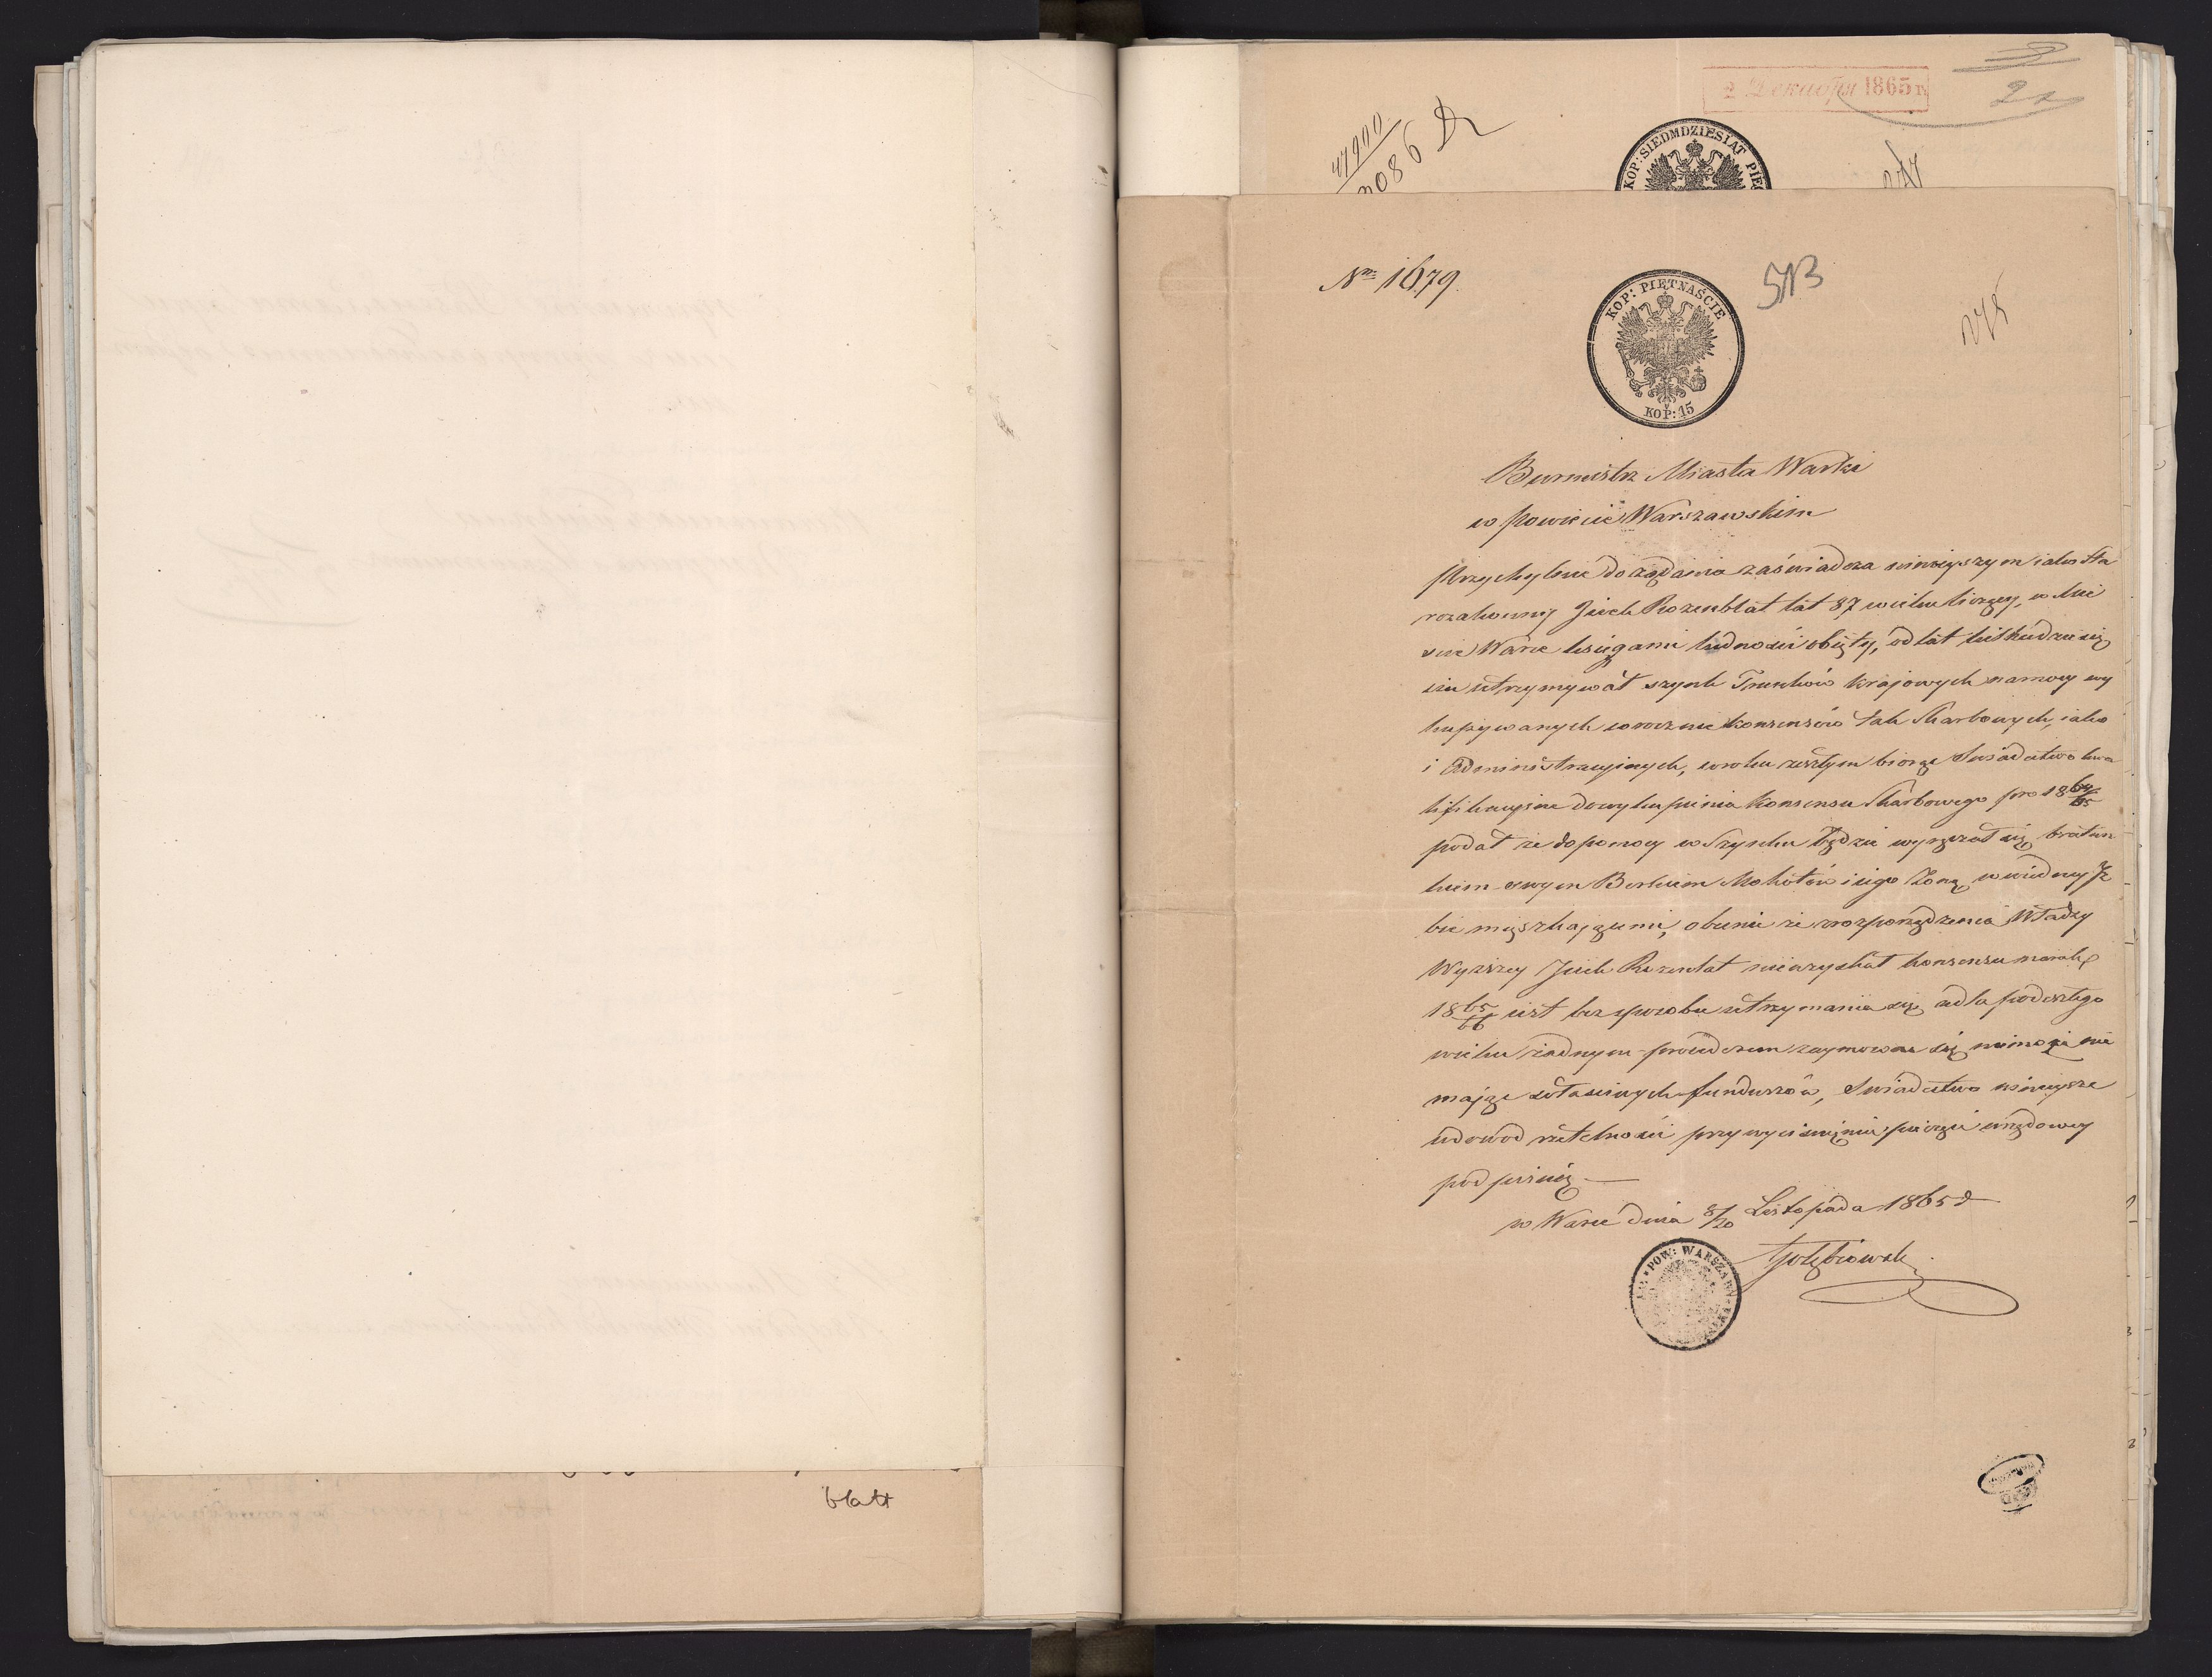 blatt
2 Декабря 1865 г.
21
47990
KOP: SIEDMDZIESIĄT PIĘ
Nr 1679.
KOP: PIĘTNAŚCIE
KOP: 15
Burmistrz Miasta Warki
w Powiecie Warszawskim
Przychylnie do żądania zaświadcza ninieyszym iako Sta
rozakonny Josek Rozenblat lat 87 wieku liczący, w Mie
scie Warce księgami ludności objęty, od lat kilkudziesię
ciu utrzymywał szynk Trunków krajowych na mocy wy
kupywanych corocznie konsensów tak Skarbowych, iako
i Administracyjnych, w roku zeszłym biorąc Swiadectwo kwa
lifikacyjne do wykupienia Konsensu Skarbowego pro 1864/65
podał że do pomocy w Szynku będzie wyręczał się bratan
kiem swym Berkiem i iego Żoną w iedney Iz
bie mieszkającemi, obecnie ze rozporządzenia Władzy
Wyższey Josek Rozenblat nieuzyskał konsensu na rok
1865/66 iest bez sposobu utrzymania się a dla podeszłego
wieku żadnym procederem zaymować się nie może nie
mając własnych funduszów, Swiadectwo ninieysze
w dowód rzetelności przy wyciśnięciu pieczęci urzędowey
podpisuię. —
w Warce dnia 8/20 Listopada 1865 r
Gołębiowski
POW: WARSZAW